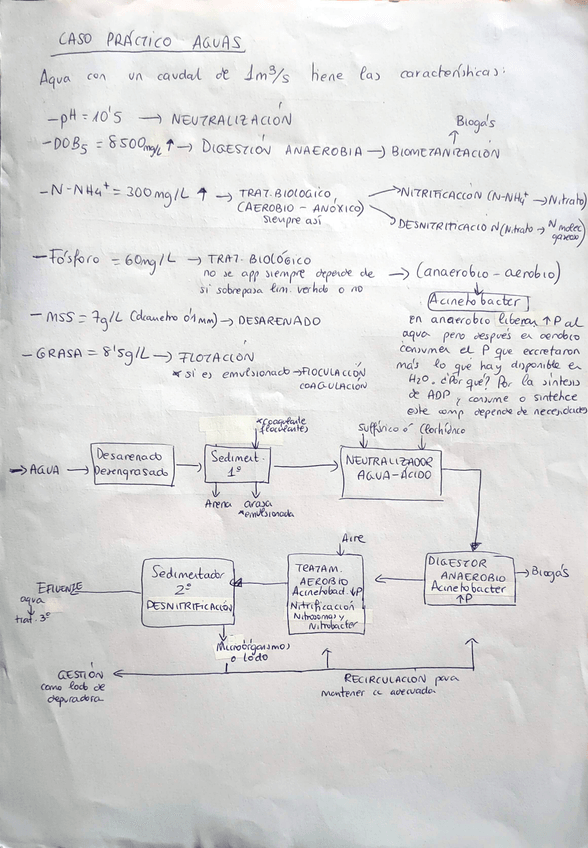 CASO PRÁCTICO AGUAS
Agua con un caudal de 1m³/s tiene las características:
- pH = 10'5 → NEUTRALIZACIÓN
Biogás
- DOB₅ = 8500mg/L ↑ → DIGESTIÓN ANAEROBIA → BIOMETANIZACIÓN
- N-NH₄⁺ = 300 mg/L ↑ → TRAT. BIOLÓGICO → NITRIFICACCIÓN (N-NH₄⁺ → Nitrato)
(AEROBIO - ANÓXICO)
siempre así
DESNITRIFICACIÓN (Nitrato → N molec
gaseoso)
- Fósforo = 60mg/L → TRAT. BIOLÓGICO → (anaerobio - aerobio)
no se app siempre depende de
si sobrepasa lim. vertido o no
Acinetobacter
en anaerobio liberan ↑P al
agua pero después en aerobio
consumen el P que excretaron
más lo que hay disponible en
H₂O. ¿Por qué? Por la síntesis
de ADP y consume o sintetice
este comp depende de necesidades
- MSS = 7g/L (diametro 0'1mm) → DESARENADO
- GRASA = 8'5g/L → FLOTACIÓN
* si es emulsionado → FLOCULACIÓN
COAGULACIÓN
→ AGUA →
Desarenado
Desengrasado
*coagulante
floculantes
Sediment.
1º
Arena
grasa
*emulsionada
Sulfúrico ó Clorhídrico
NEUTRALIZADOR
AGUA-ÁCIDO
DIGESTOR
ANAEROBIO
Acinetobacter
↑P
→ Biogás
Aire
TRATAM.
AEROBIO
Acinetobad. ↓P
Nitrificación
Nitrosomas y
Nitrobacter
Sedimentador
2º
DESNITRIFICACIÓN
EFLUENTE
agua
trat. 3º
Microorganismos
o lodo
GESTIÓN
como lodo de
depuradora
RECIRCULACIÓN para
mantener cc adecuada